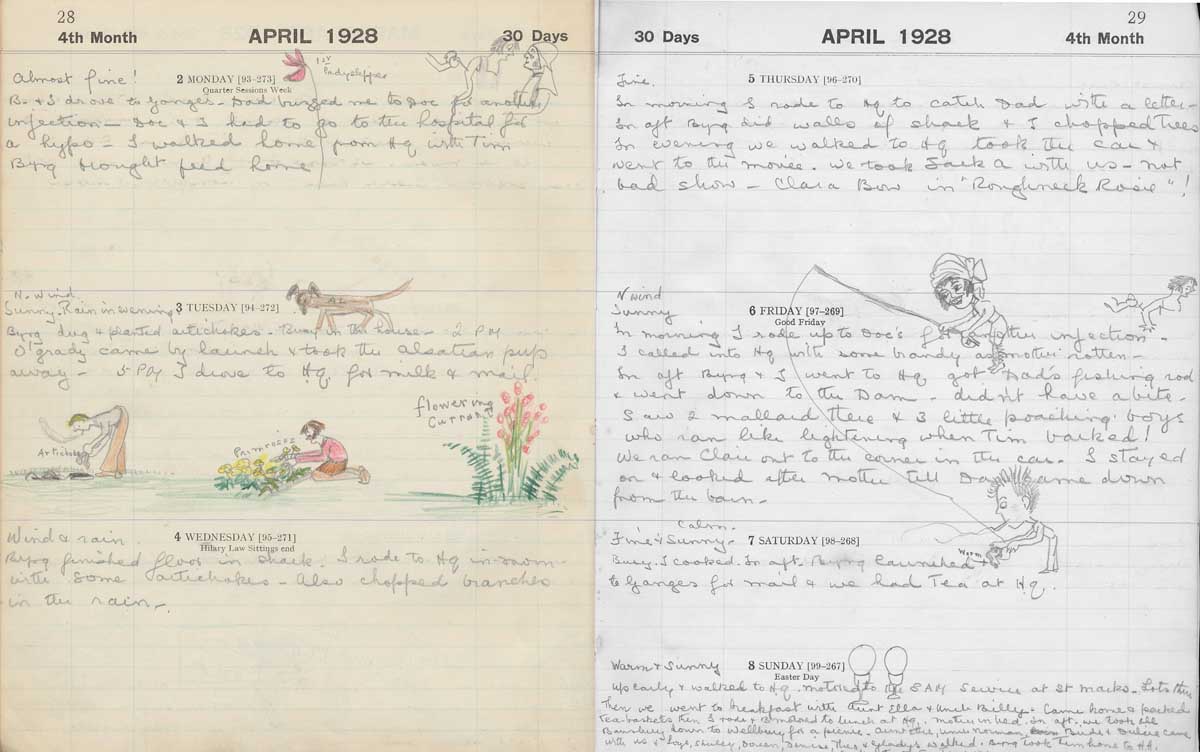 28
4th Month
APRIL 1928
30 Days
Almost fine!
2 MONDAY [93-273]
Quarter Sessions Week
1st
Ladyslipper
B. & I drove to Ganges - Dad buzzed me to Doc for another
injection - Doc & I had to go to the hospital for
a hypo - I walked home from Hq with Tim
Byrq brought feed home
N. Wind
Sunny. Rain in evening
3 TUESDAY [94-272]
AL
Byrq dug & planted artichokes - Busy in the house - 2 PM
O'grady came by launch & took the alsatian pup
away - 5 PM I drove to Hq. for milk & mail.
Artichokes
Primroses
flowering
Currant
Wind & rain
4 WEDNESDAY [95-271]
Hilary Law Sittings end
Byrq finished floor in shack. I rode to Hq in
with some artichokes - Also chopped branches
in the rain -
29
30 Days
APRIL 1928
4th Month
Fine.
5 THURSDAY [96-270]
In morning I rode to Hq to catch Dad with a letter -
In aft Byrq did walls of shack & I chopped trees
In evening we walked to Hq took the car &
went to the movie. We took Jack a with us - not
bad show - Clara Bow in "Roughneck Rosie"!
N wind
Sunny
6 FRIDAY [97-269]
Good Friday
In morning I rode up to Doc's for another injection -
I called into Hq with some brandy as mother rotten -
In aft Byrq & I went to Hq got Dad's fishing rod
& went down to the Dam - didn't have a bite -
Saw 2 mallard there & 3 little poaching boys
who ran like lightening when Tim barked!
We ran Clair out to the corner in the car. I stayed
on & looked after mother till Dad came down
from the barn -
Calm.
Fine & Sunny -
7 SATURDAY [98-268]
Worm
Busy. I cooked. In aft. Byrq launched &
to Ganges for mail & we had Tea at Hq.
Warm & Sunny
8 SUNDAY [99-267]
Easter Day
Up early & walked to Hq. motored to the 8 AM Service at St Marks - Lots there
Then we went to breakfast with Aunt Ella & Uncle Billy. Came home & packed
tea-baskets then I rode & B motored to lunch at Hq. Mother in bed. In aft. we took the
down to Wellbury for a picnic. Aunt Ella, Uncle Norman, came
with us & boys, Shirley, Doreen, Denise & Gladys walked. Byrq took Tim back to Hq